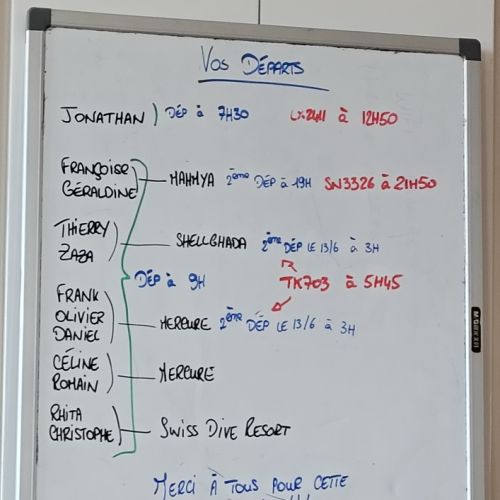 Vos DÉPARTS
JONATHAN ) DÉP à 7H30 à 12H50
FRANÇOISE
GÉRALDINE MAHMYA 2ème DÉP à 19H SN3326 à 21H50
THIERRY
ZAZA SHELLGHADA 2ème DÉP LE 13/6 à 3H
DÉP à 9H TK703 à 5H45
FRANK
OLIVIER
DANIEL MERCURE 2ème DÉP LE 13/6 à 3H
CÉLINE
ROMAIN MERCURE
RHITA
CHRISTOPHE SWISS DIVE RESORT
MERCI À TOUS POUR CETTE